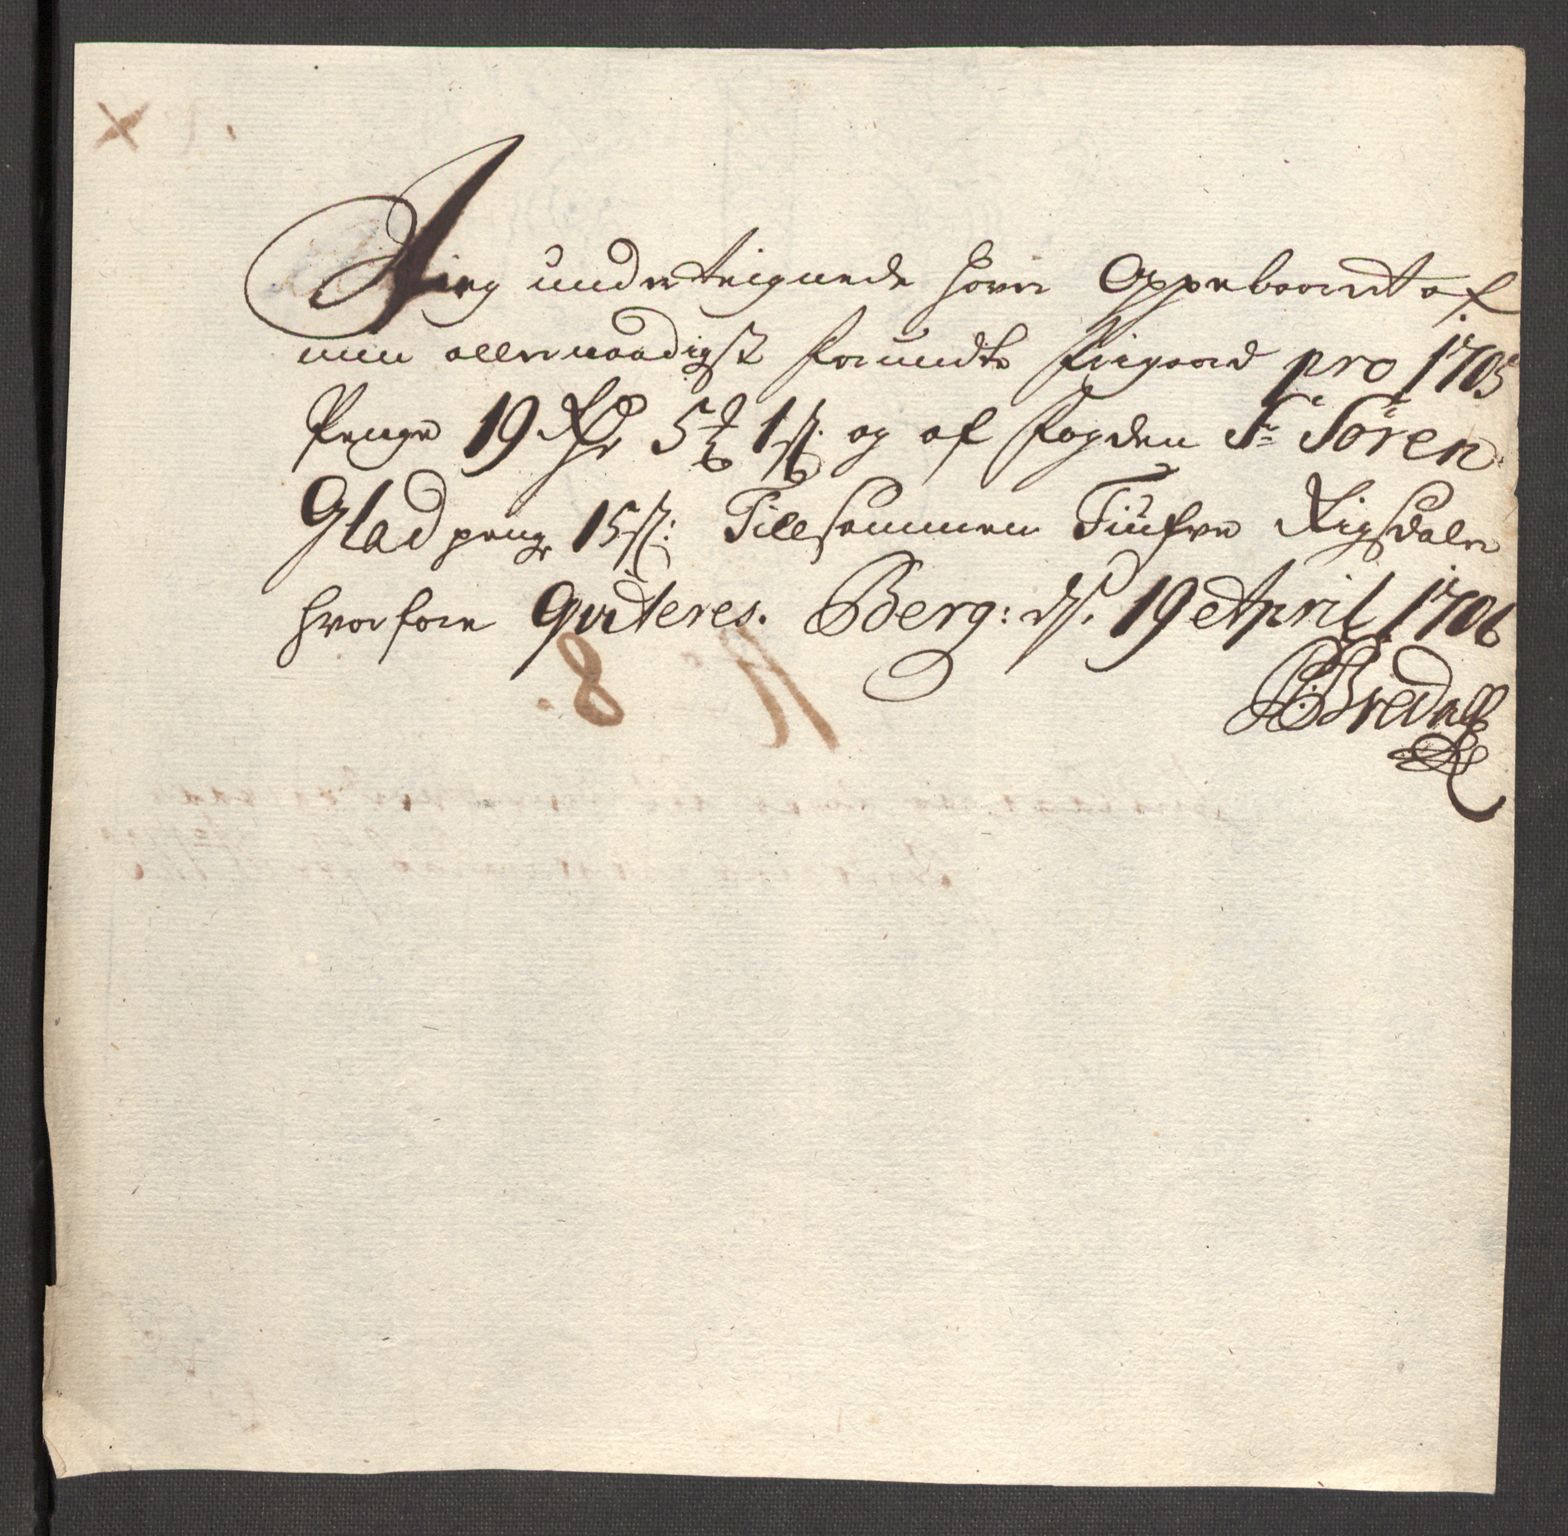 Ieg underteignede hafver Oppebaaret af
min allernaadigst forundte friigaard pro 1705
Penge 19 Rdr 5 ₰ 1 ß: og af fogden Sr Sören
Glad peng 15 ß: Tillsammen Tiufve Rigsdaler
hvorfore Qviteres. Berg: ds. 19 April 1706
Bredall
N 8.